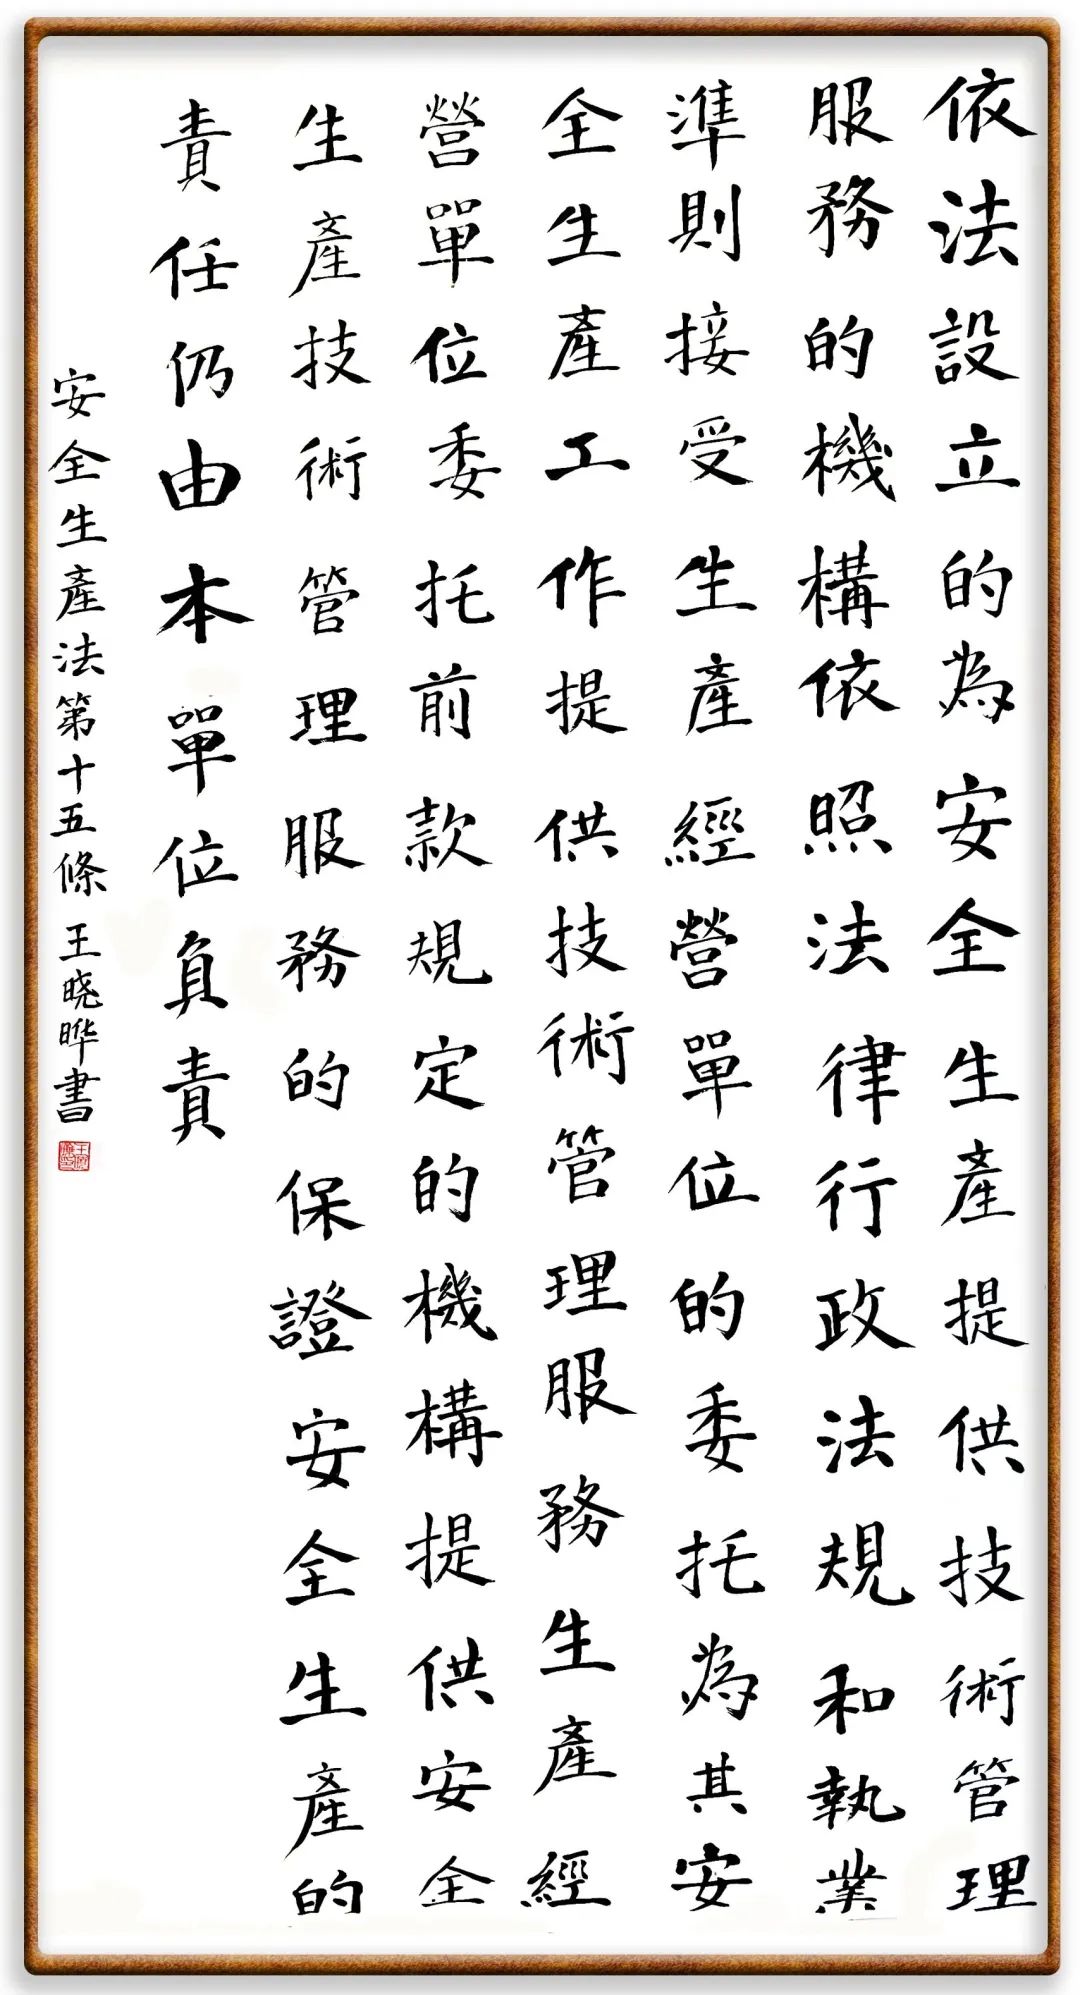 依法設立的為安全生產提供技術管理
服務的機構依照法律行政法規和執業
準則接受生產經營單位的委托為其安
全生產工作提供技術管理服務生產經
營單位委托前款規定的機構提供安全
生產技術管理服務的保證安全生產的
責任仍由本單位負責
安全生產法第十五條 王晓晔書